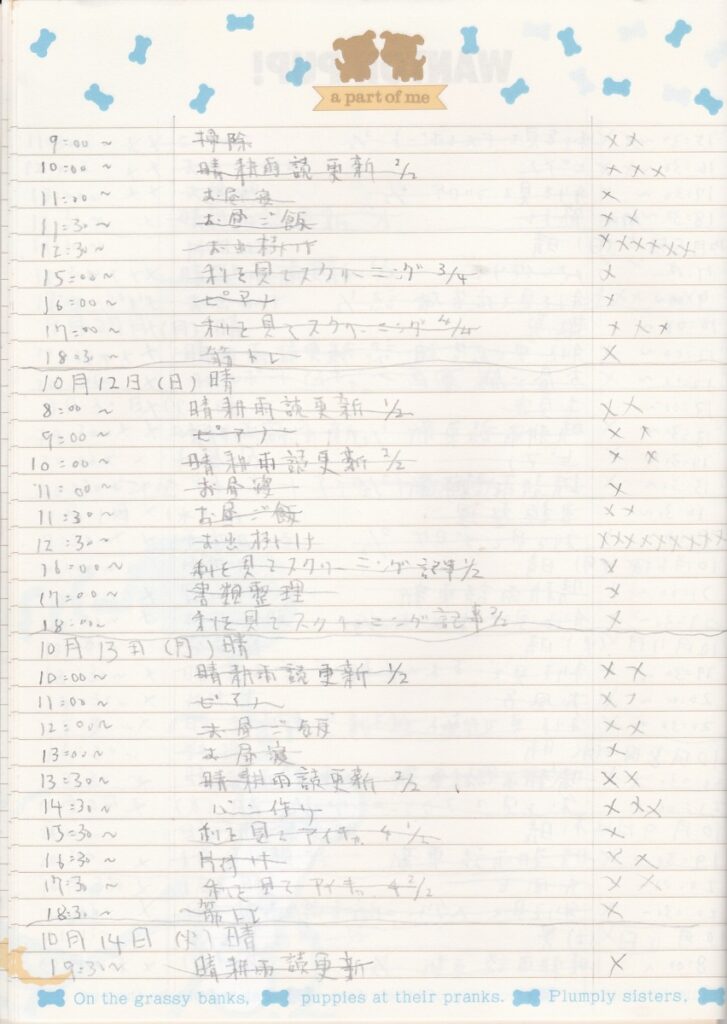 a part of me
9:00~ 掃除 ××
10:00~ 晴耕雨読更新 2/2 ×××
11:00~ お昼寝 ×
11:30~ お昼ご飯 ××
12:30~ お出掛け ××××××
15:00~ 私を見てスクリーニング 3/4 ×
16:00~ ピアノ ×
17:00~ 私を見てスクリーニング 4/4 ×××
18:30 筋トレ ×
10月12日(日)晴
8:00 ~ 晴耕雨読更新 1/2 ××
9:00~ ピアノ ××
10:00~ 晴耕雨読更新 2/2 ××
11:00~ お昼寝 ×
11:30~ お昼ご飯 ××
12:30~ お出掛け ×××××××××
16:00~ 私を見てスクリーニング記事1/2 ×
17:00~ 書類整理 ×
18:00~ 私を見てスクリーニング記事2/2 ×
10月13日(月)晴
10:00~ 晴耕雨読更新 1/2 ××
11:00~ ピアノ ××
12:00~ お昼ご飯 ××
13:00~ お昼寝 ×
13:30~ 晴耕雨読更新 2/2 ××
14:30~ パン作り ×××
15:30~ 私を見て 4 1/2 ×
16:30~ 片付け ××
17:30~ 私を見て 4 2/2 ××
18:30~ 筋トレ ×
10月14日(火)晴
19:30~ 晴耕雨読更新 ×
On the grassy banks, puppies at their pranks. Plumply sisters.